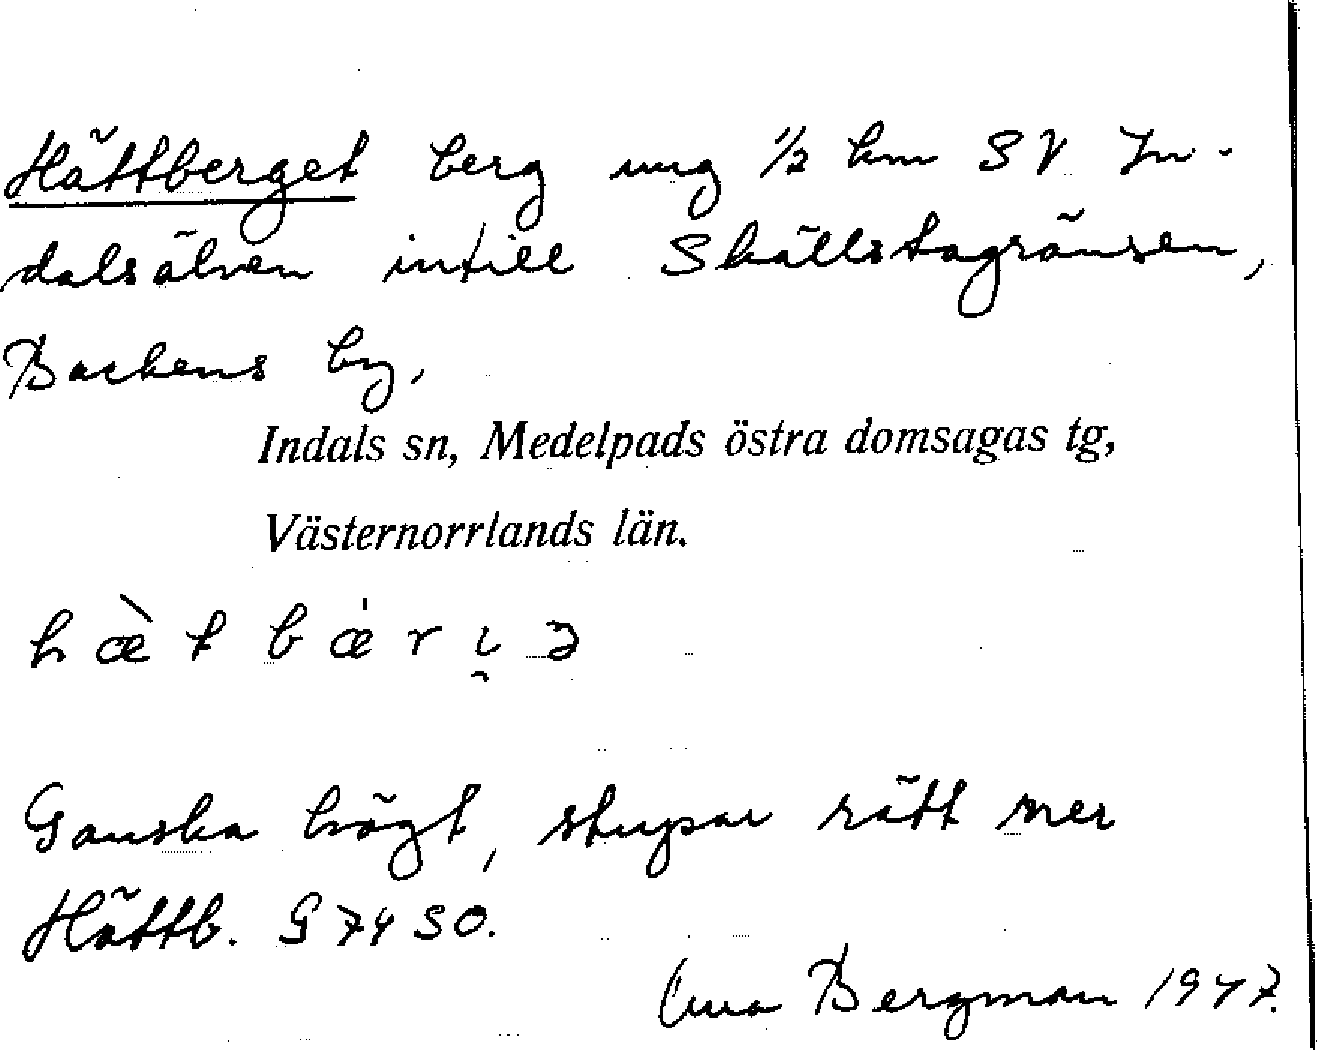 Hättberget berg ung ½ km SV In-
dalsälven intill Skällstagränsen,
Backens by.
Indals sn, Medelpads östra domsagas tg,
Västernorrlands län.
Ganska högt, stupar rätt ner
Hättb. G 74 SO.
Bergman 1947.